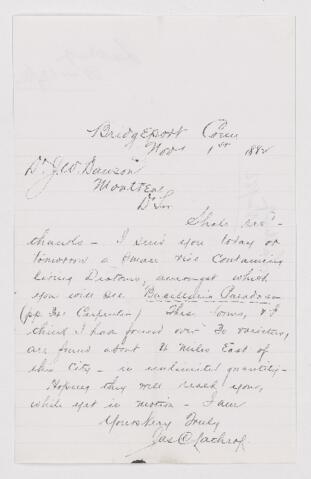 Bridgeport Conn
Nov. 1st 1882
Dr J. W. Dawson
Montreal
Dr Sir
thanks - I send you today or
tomorrow a small containing
living Diatoms, amongst which
you will see "Bacillaria Paradoxa"
(pp Carpenter) This form, & I
think I had found over 30 varieties,
are found about 4 miles East of
this City - in unlimited quantity -
Hoping they will reach you,
while yet in motion - I am
Yours Very Truly
Jas C Lathrop